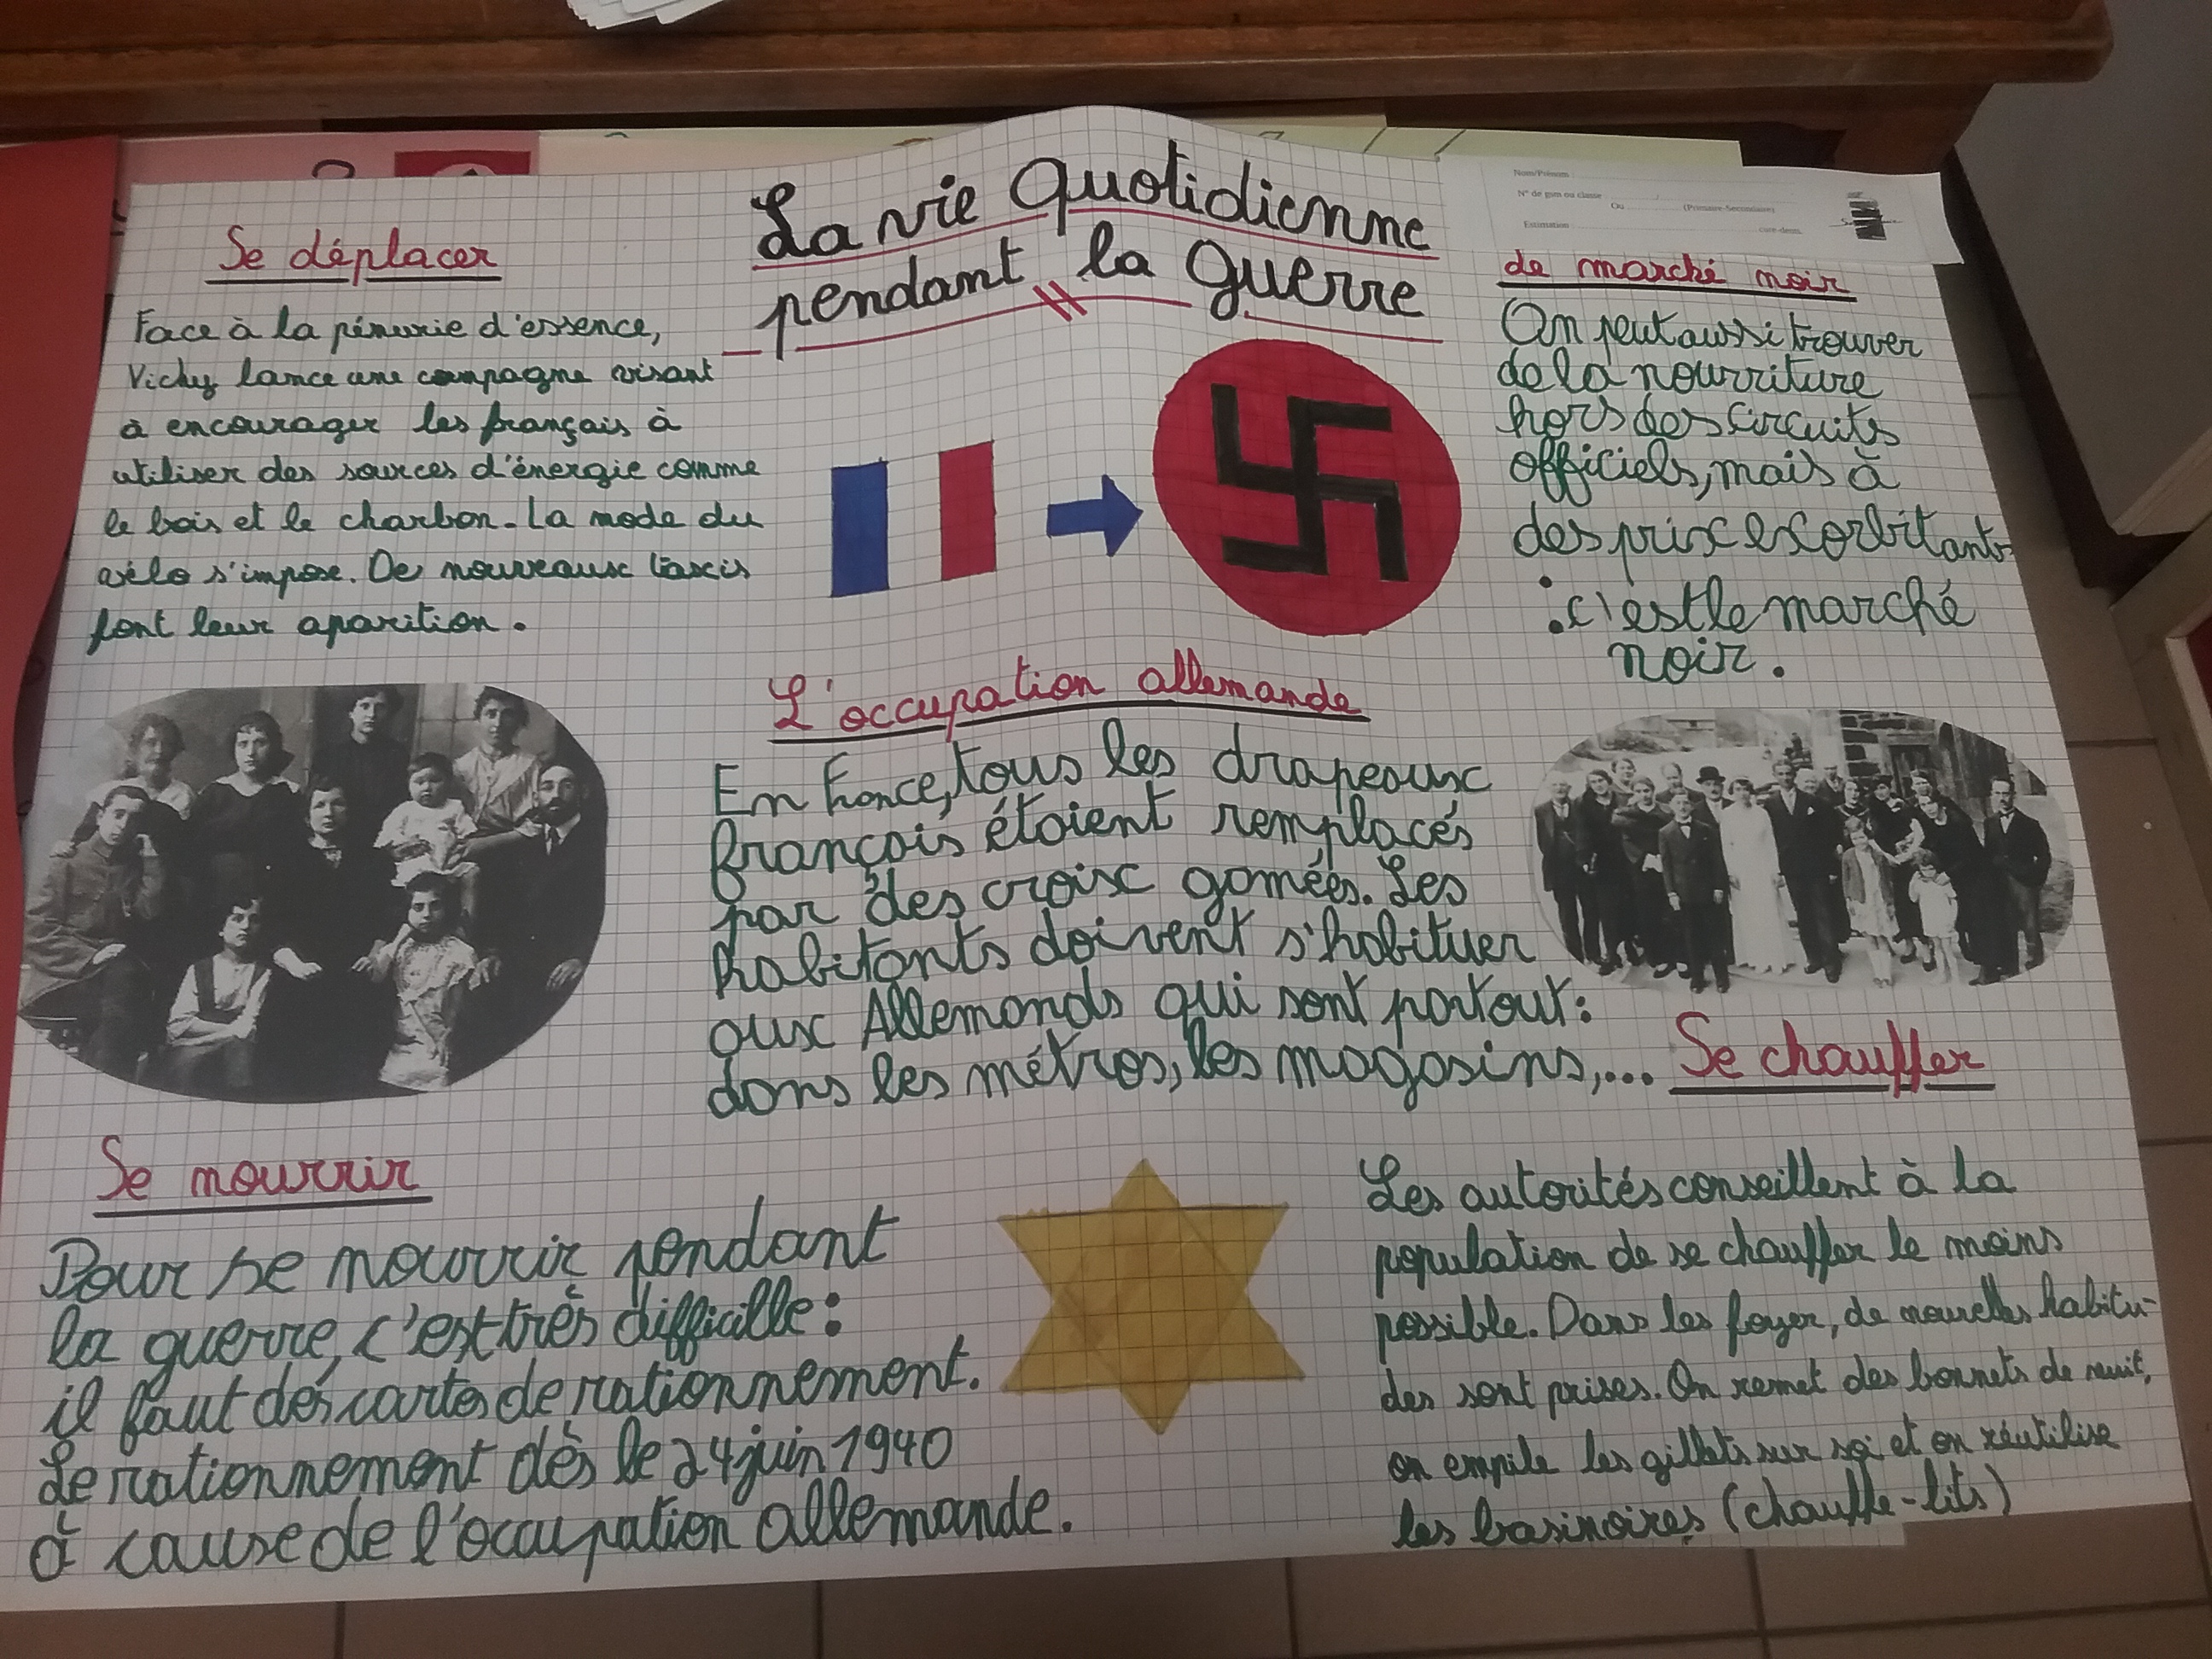 La vie Quotidienne
pendant la guerre
Se déplacer
Face à la pénurie d'essence,
Vichy lance une campagne visant
à encourager les français à
utiliser des sources d'énergie comme
le bois et le charbon. La mode du
vélo s'impose. De nouveaux taxis
font leur aparition.
Nom/Prénom
N° de gsm ou classe
Ou (Primaire-Secondaire)
Estimation cure-dents.
de marché noir
On peut aussi trouver
de la nourriture
hors des circuits
officiels, mais à
des prix exorbitants
: c'est le marché
noir.
L'occupation allemande
En France, tous les drapeaux
français étaient remplacés
par des croix gamées. Les
habitants doivent s'habituer
aux Allemands qui sont partout:
dans les métros, les magasins,...
Se chauffer
Les autorités conseillent à la
population de se chauffer le moins
possible. Dans les foyer, de nouvelles habitu-
des sont prises. On remet des bonnets de nuit,
on empile les gillets sur soi et on réutilise
les basinoires (chauffe-lits)
Se nourrir
Pour se nourrir pendant
la guerre, c'est très difficille:
il faut des cartes de rationnement.
Le rationnement dès le 24 juin 1940
à cause de l'occupation allemande.